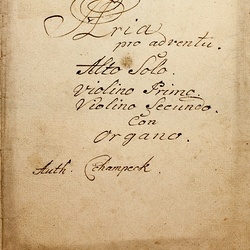 Aria
pro adventu.
Alto Solo.
Violino Primo.
Violino Secundo.
Con
Organo.
Auth. Champeck.